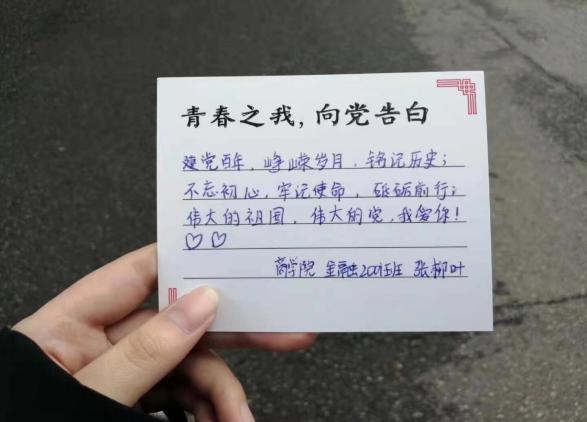 青春之我，向党告白
建党百年，峥嵘岁月，铭记历史；
不忘初心，牢记使命，砥砺前行；
伟大的祖国，伟大的党，我爱你！
♡♡
商学院 金融2001班 张柳叶